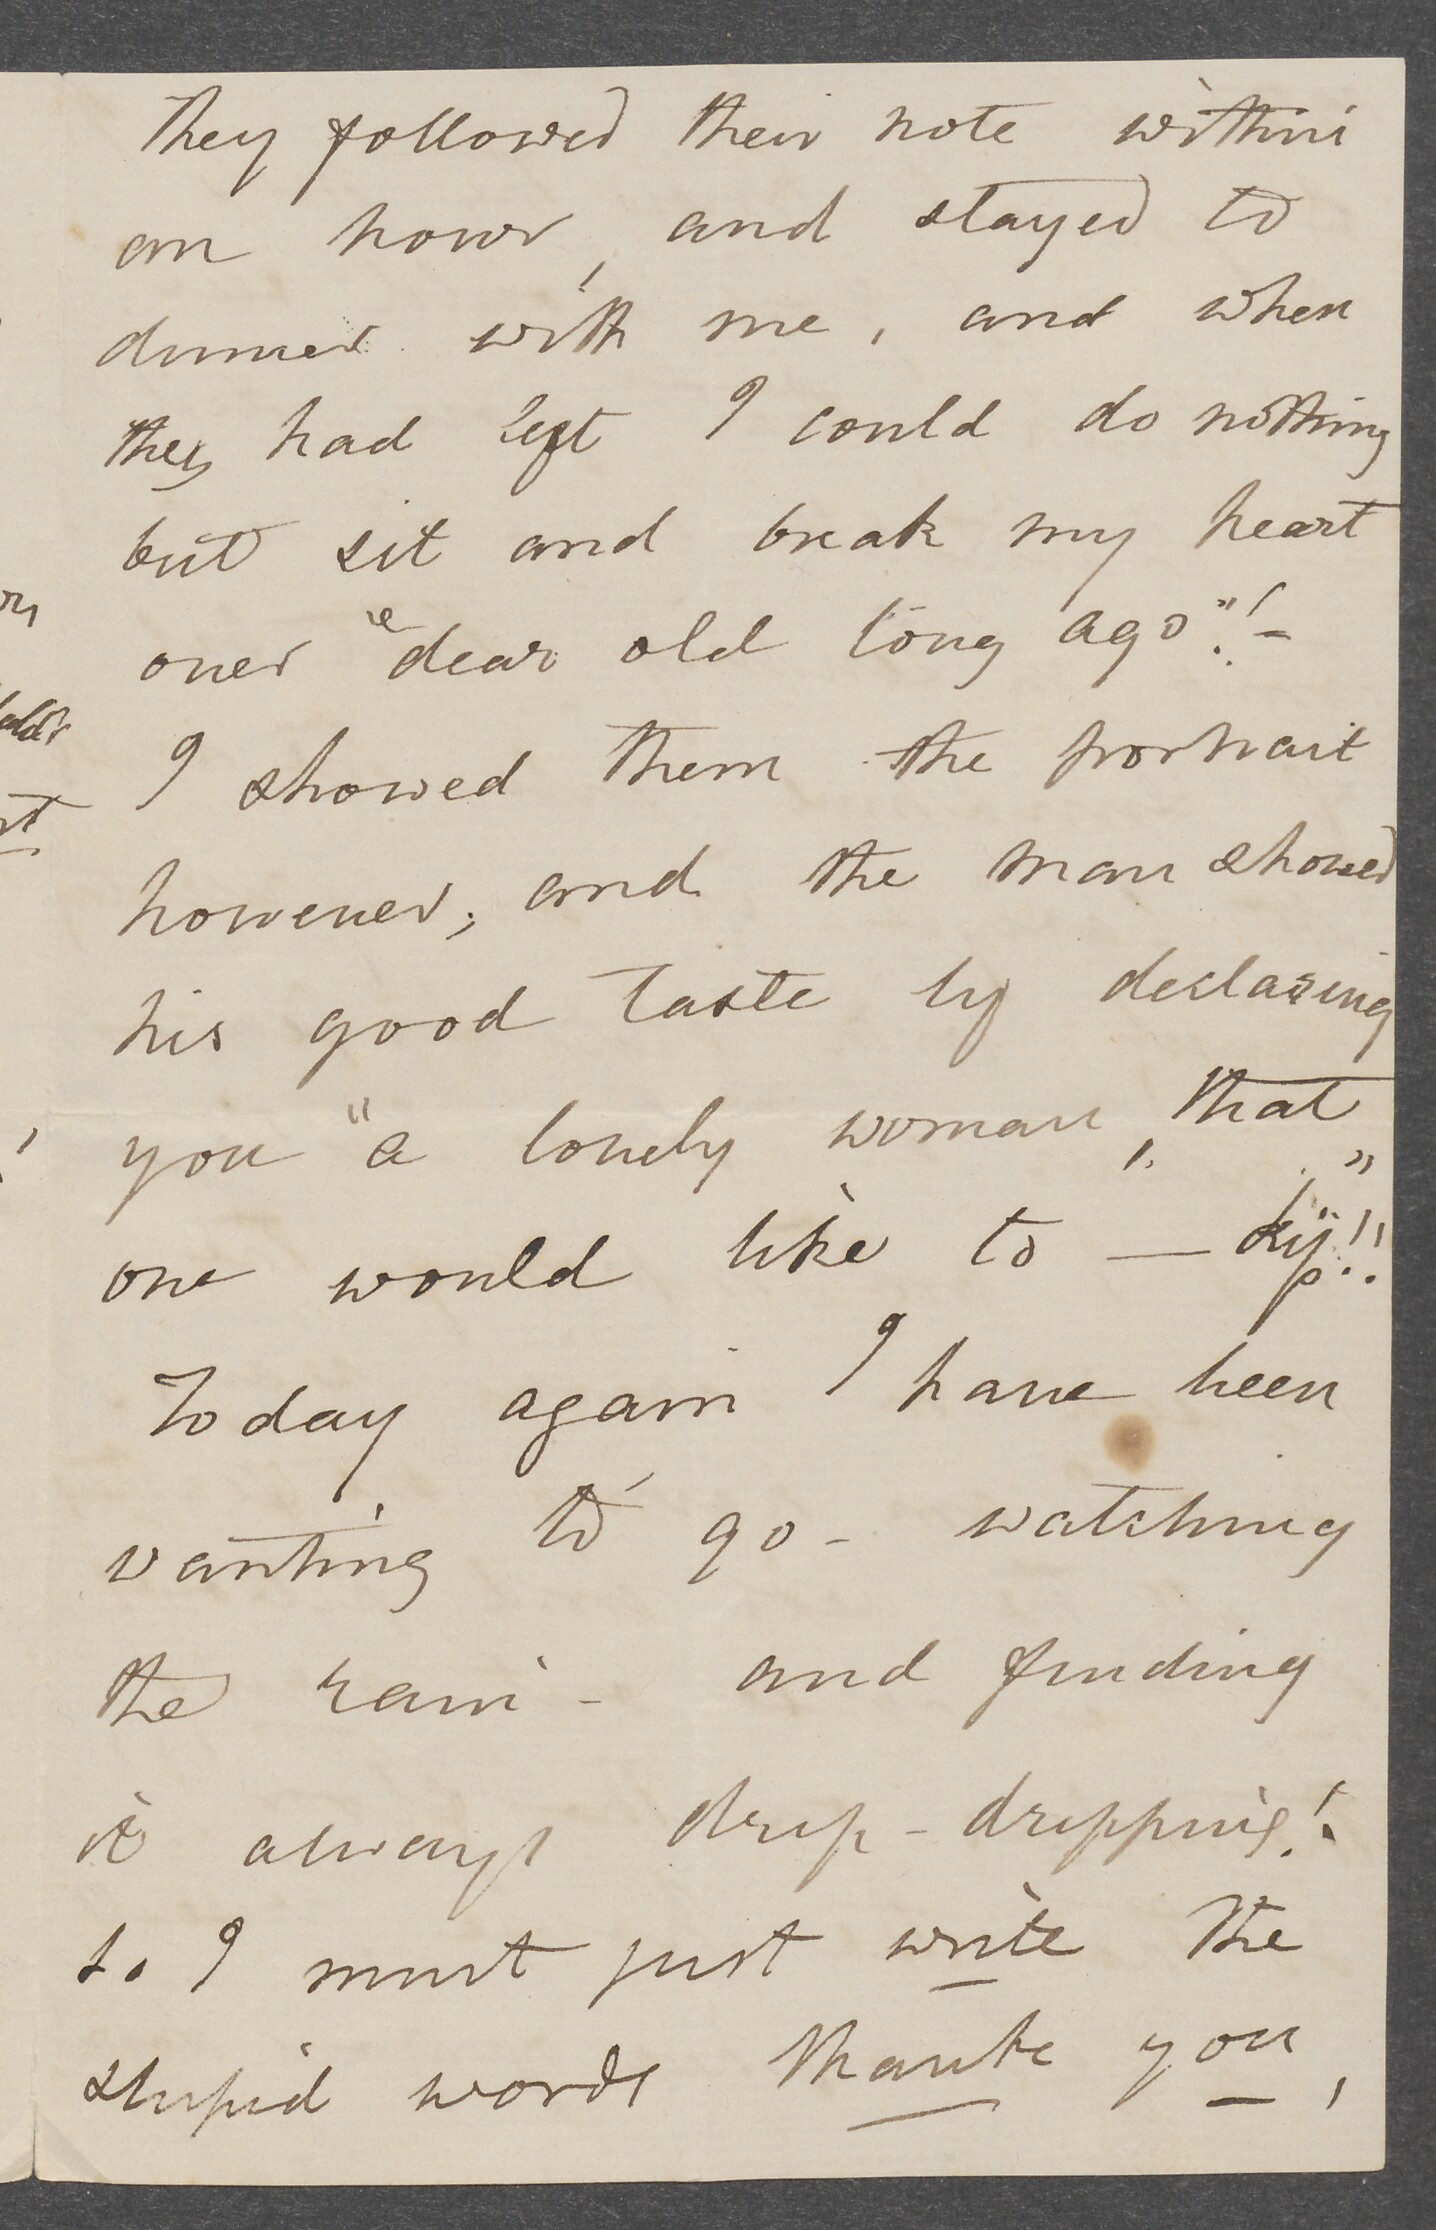 They followed their note within
an hour, and stayed to
dinner with me, and when
they had left I could do nothing
but sit and break my heart
over "dear old long ago"!-
I showed them the portrait
however, and the man showed
his good taste by declaring
you "a lovely woman, that
one would like to —"!!
Today again I have been
wanting to go - watching
the rain - and finding
it always drip-dripping!
So I must just write the
stupid words thank you,